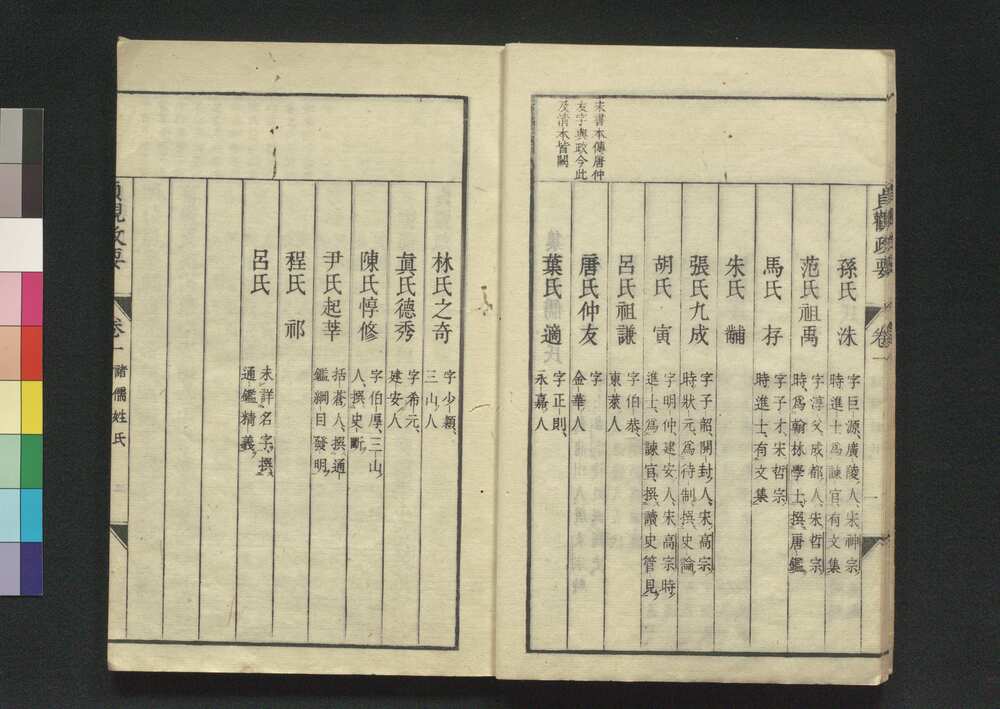 貞觀政要
卷一
孫氏 洙
字巨源、廣陵人、宋神宗
時進士、爲諫官、有文集
范氏祖禹
字淳父、成都人、宋哲宗
時、爲翰林學士、撰唐鑑、
馬氏 存
字子才、宋哲宗
時進士、有文集
朱氏 黼
張氏九成
字子韶、開封人、宋高宗
時狀元、爲待制、撰史論、
胡氏 寅
字明仲、建安人、宋高宗時
進士、爲諫官、撰讀史管見、
呂氏祖謙
字伯恭、
東萊人
唐氏仲友
字
金華人
葉氏 適
字正則、
永嘉人
宋書本傳唐仲
友字與政今此
及清本皆闕
林氏之奇
字少穎、
三山人
眞氏德秀
字希元、
建安人
陳氏惇修
字伯厚、三山
人、撰史斷、
尹氏起莘
括蒼人、撰通
鑑綱目發明、
程氏 祁
呂氏
未詳名字、撰
通鑑精義、
貞觀政要
卷一
諸儒姓氏